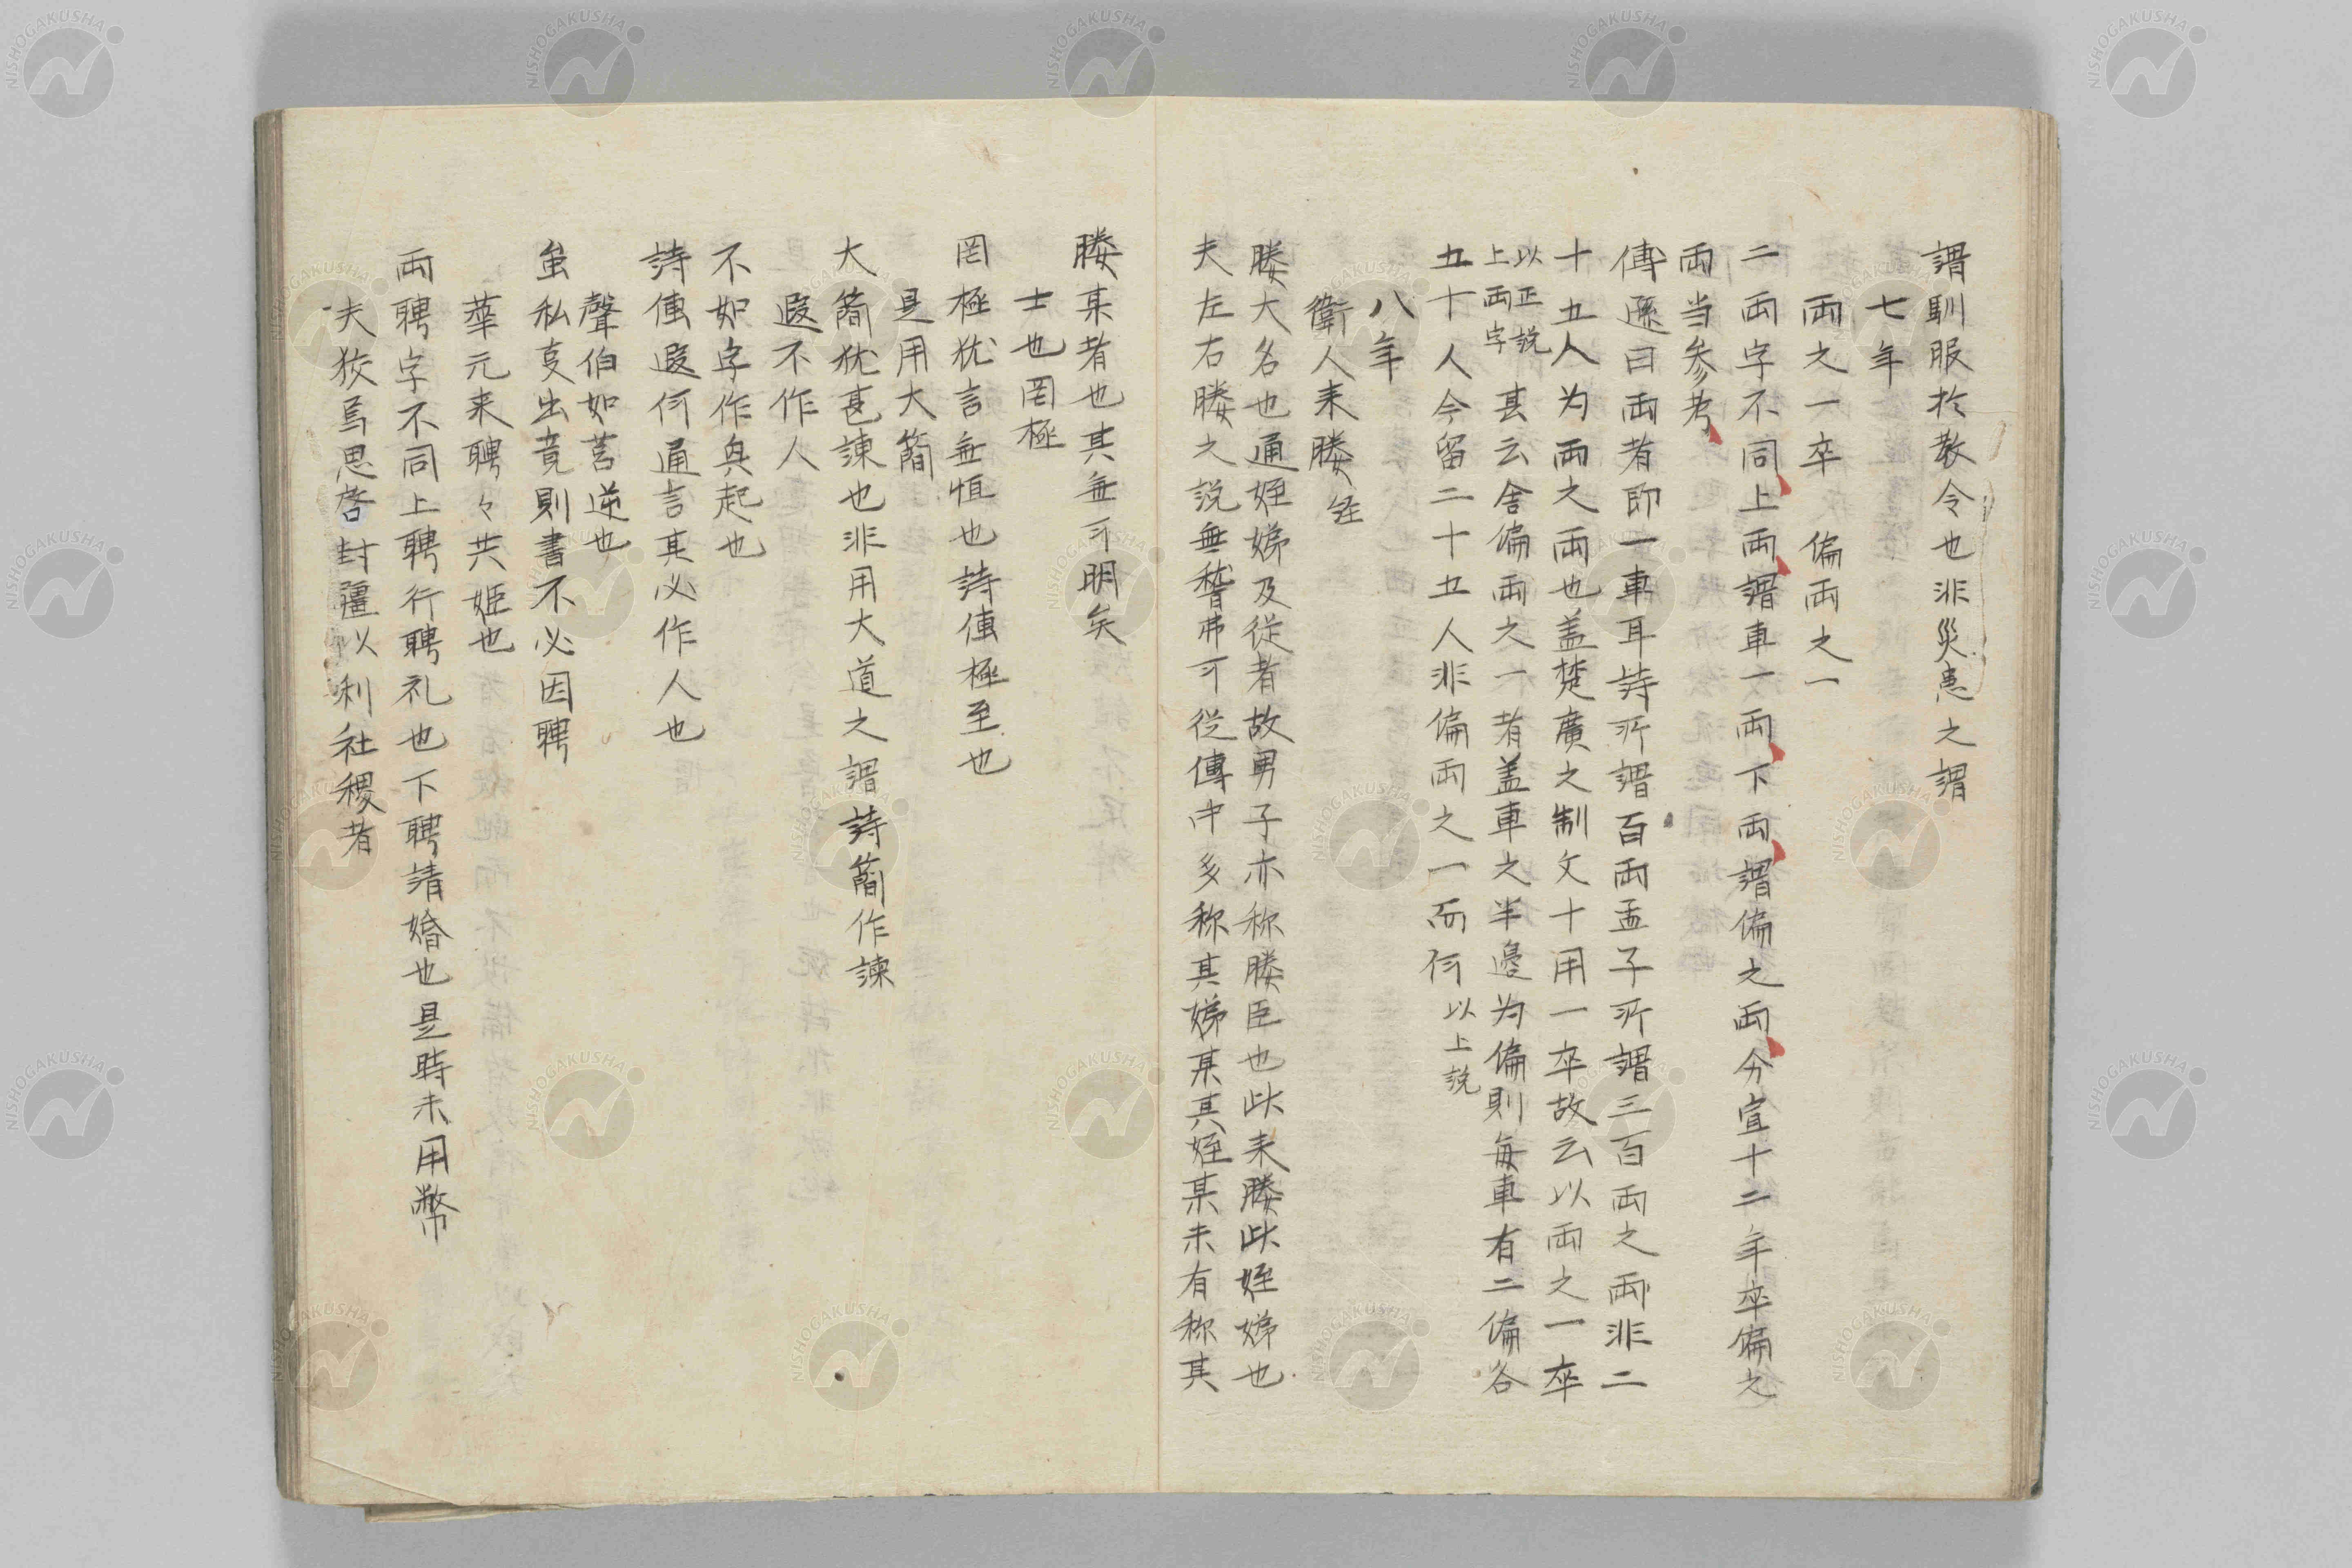 謂馴服於教令也非災患之謂
七年
両之一卒　偏両之一
二両字不同上両謂車一両下両謂偏之両分宣十二年卒偏之
両当参考
傅遜曰両者即一車耳詩所謂百両孟子所謂三百両之両非二
十五人為両之両也盖楚廣之制文十用一卒故云以両之一卒
以正説
上両字
甚云舎偏両之一者盖車之半邉為偏則毎車有二偏各
五十人今留二十五人非偏両之一而何 以上説
八年
衛人来媵 経
媵大名也通姪娣及従者故男子亦称媵臣也此来媵此姪娣也
夫左右媵之説無稽弗可従傳中多称其娣某其姪某未有称其
媵某者也其無可明矣
士也罔極
罔極犹言無恒也詩傳極至也
是用大簡
大簡犹甚諌也非用大道之謂詩簡作諌
遐不作人
不如字作與起也
詩傳遐何通言其必作人也
聲伯如莒逆也
虽私㕝出竟則書不必因聘
華元来聘々共姫也
両聘字不同上聘行聘礼也下聘請婚也是時未用幣
夫狡焉思啓封疆以利社稷者
NISHOGAKUSHA